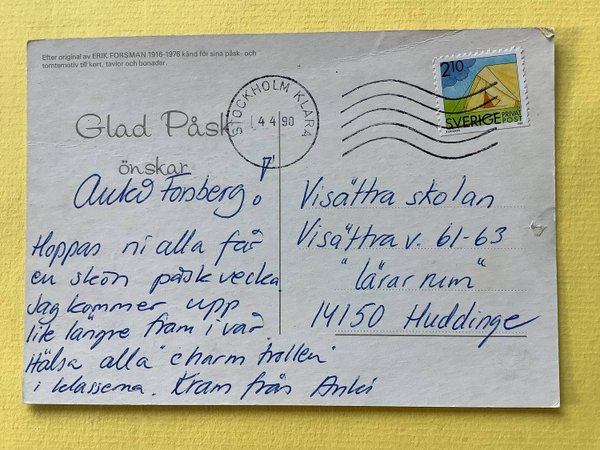 Efter original av ERIK FORSMAN 1916-1976 känd för sina påsk- och
tomtemotiv till kort, tavlor och bonader.
STOCKHOLM KLARA
4 4 90
2.10
SVERIGE PRIVAT
POST
Glad Påsk
önskar
Anki Forsberg!
Hoppas ni alla får
en skön påskvecka
Jag kommer upp
lite längre fram i vår.
Hälsa alla "charmtrollen"
i klasserna. Kram från Anki
Visättra skolan
Visättra v. 61-63
"lärar rum"
14150 Huddinge